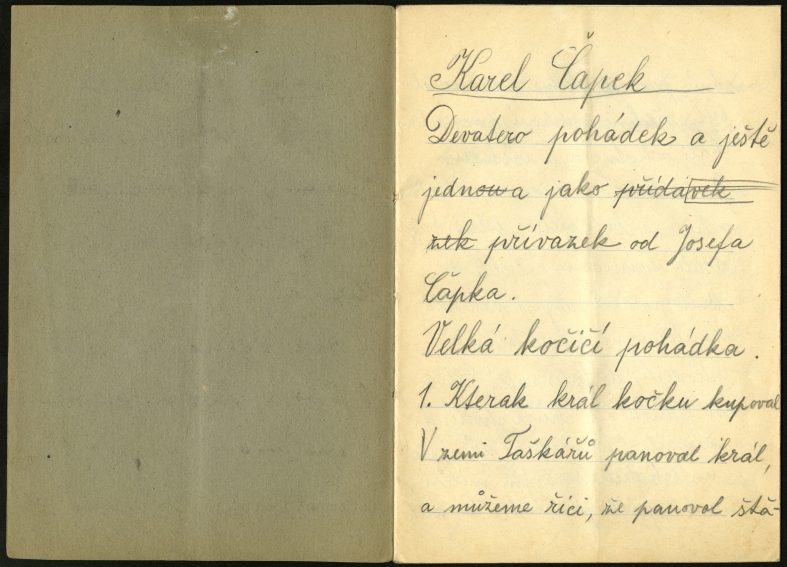 Karel Čapek
Devatero pohádek a ještě
jednou a jako přídavek
zek přívazek od Josefa
Čapka.
Velká kočičí pohádka.
1. Kterak král kočku kupoval
V zemi Taškářů panoval král,
a můžeme říci, že panoval šťa-